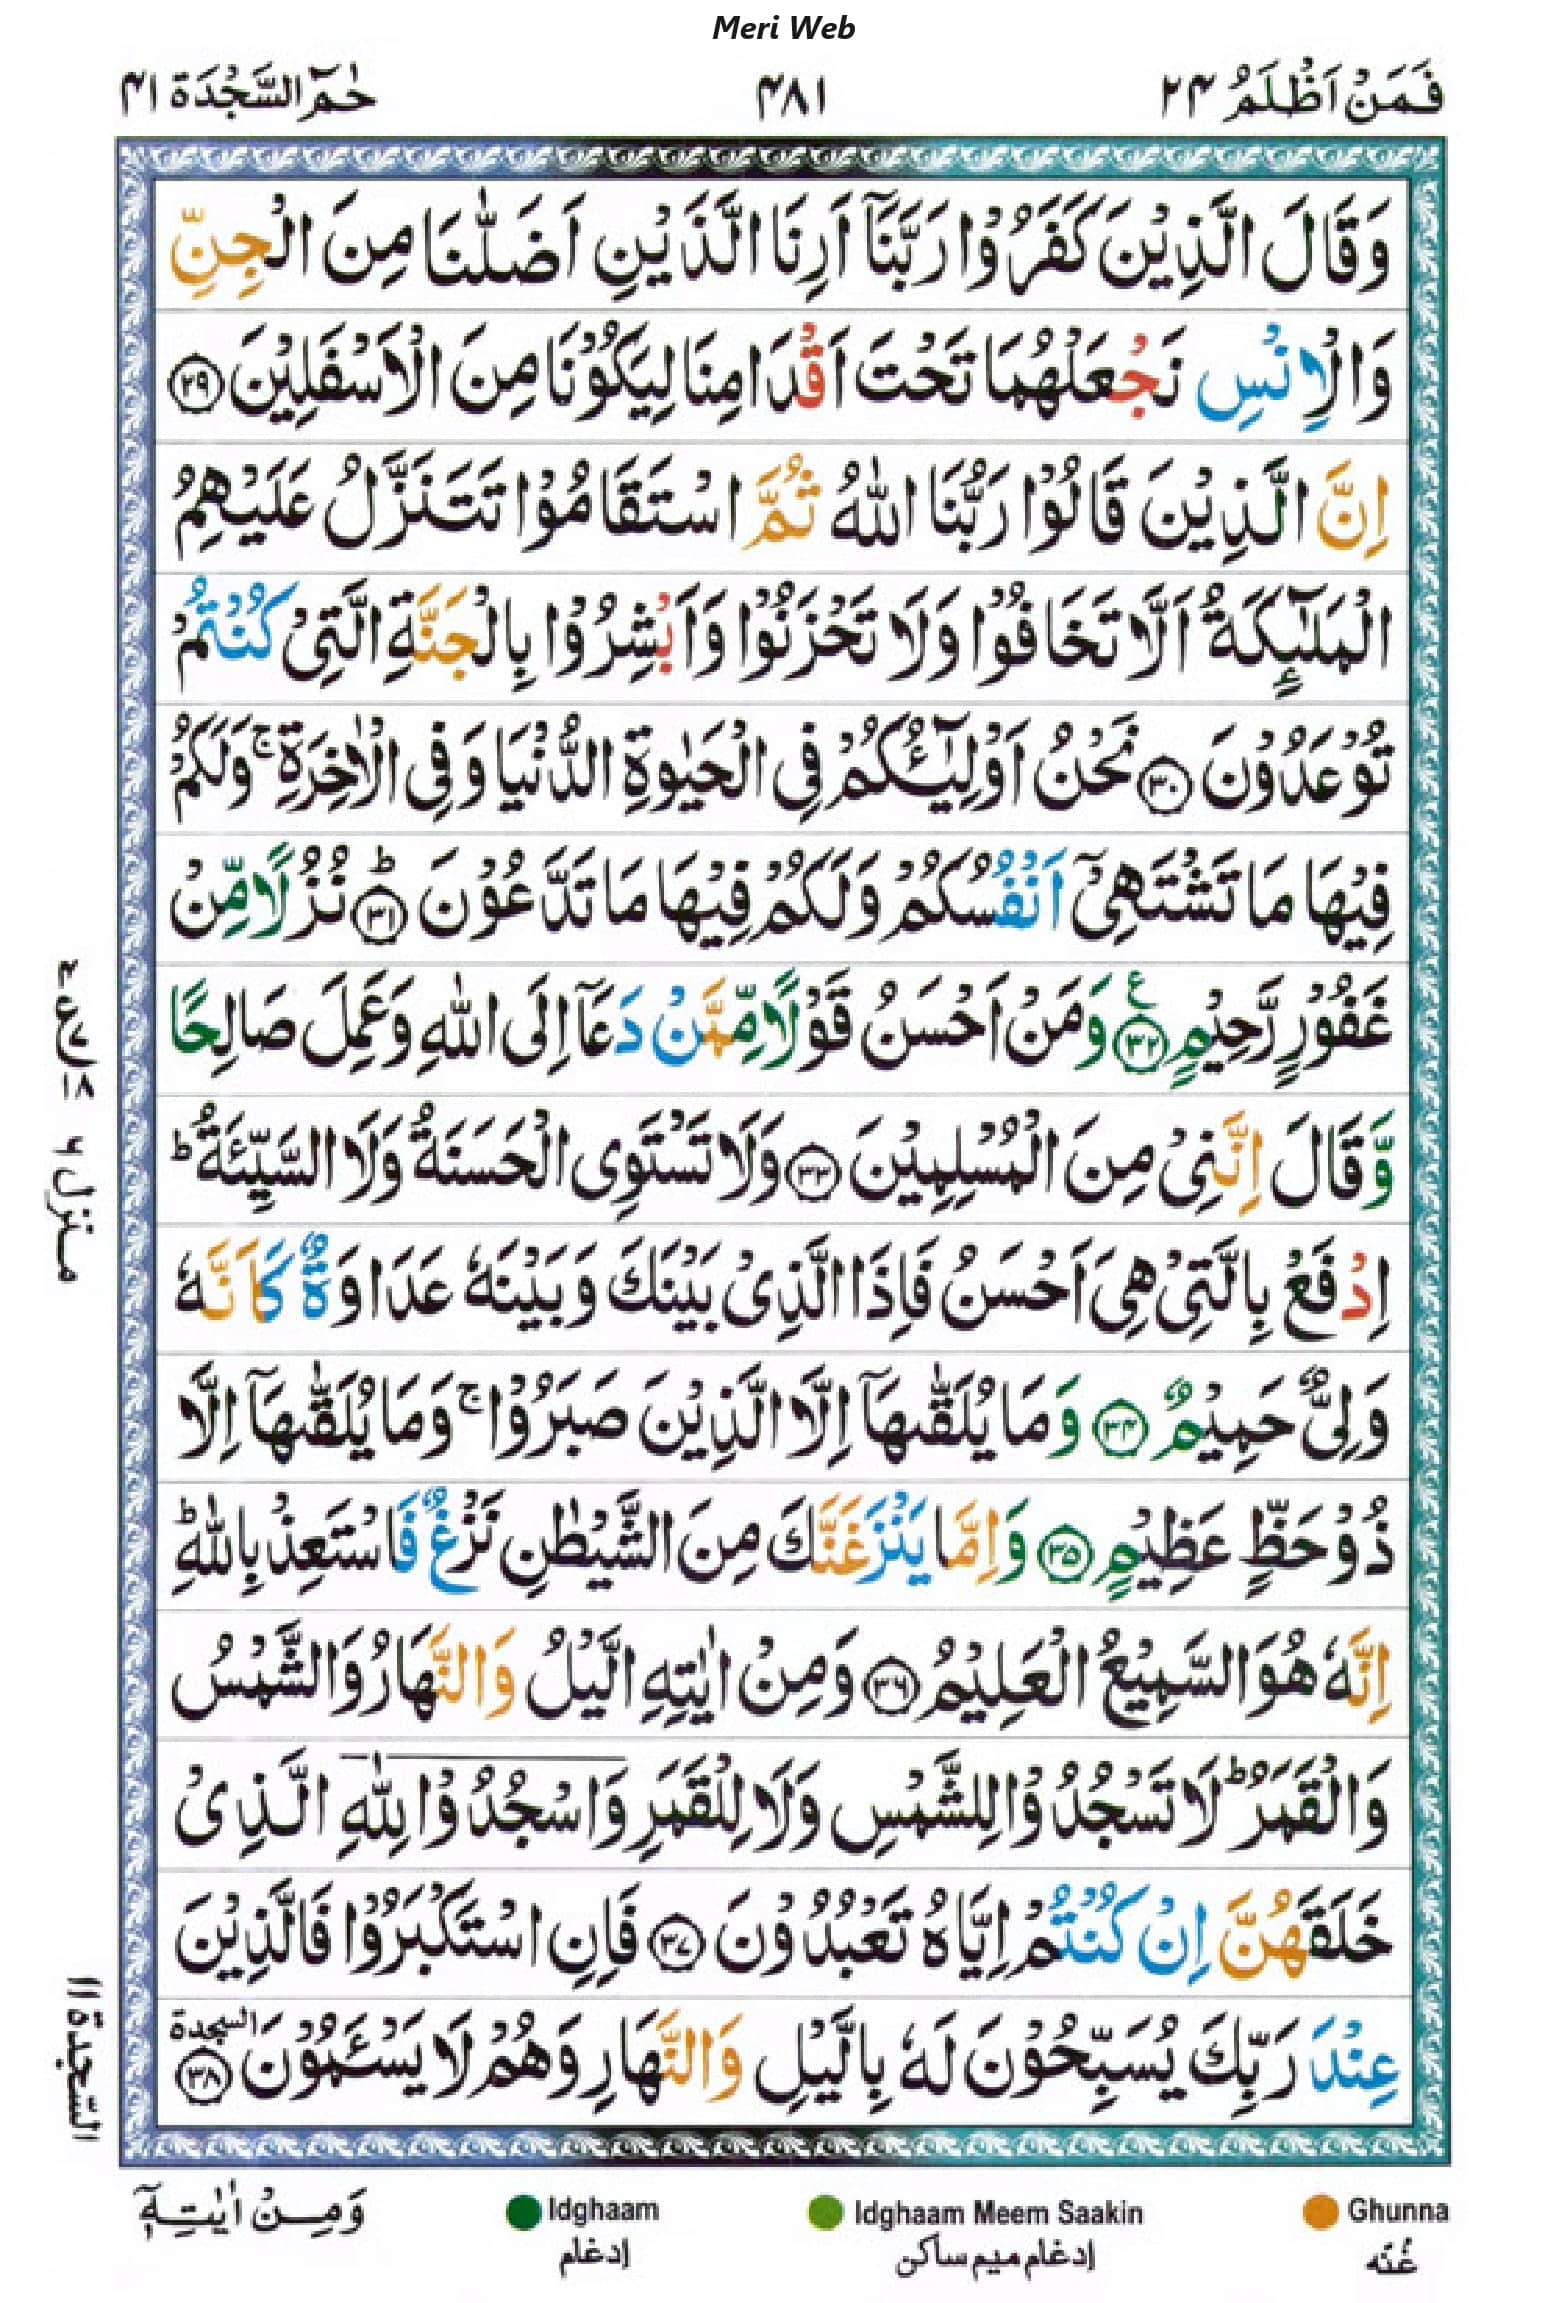 Meri Web
فَمَنْ اَظْلَمُ ۲۴ ۴۸۱ حٰمٓ السَّجْدَة ۴۱
وَقَالَ الَّذِيْنَ كَفَرُوْا رَبَّنَاۤ اَرِنَا الَّذَيْنِ اَضَلّٰنَا مِنَ الْجِنِّ
وَالْاِنْسِ نَجْعَلْهُمَا تَحْتَ اَقْدَامِنَا لِيَكُوْنَا مِنَ الْاَسْفَلِيْنَ ۝۲۹
اِنَّ الَّذِيْنَ قَالُوْا رَبُّنَا اللّٰهُ ثُمَّ اسْتَقَامُوْا تَتَنَزَّلُ عَلَيْهِمُ
الْمَلٰٓئِكَةُ اَلَّا تَخَافُوْا وَلَا تَحْزَنُوْا وَاَبْشِرُوْا بِالْجَنَّةِ الَّتِيْ كُنْتُمْ
تُوْعَدُوْنَ ۝۳۰ نَحْنُ اَوْلِيٰٓـؤُكُمْ فِي الْحَيٰوةِ الدُّنْيَا وَفِي الْاٰخِرَةِ ۚ وَلَكُمْ
فِيْهَا مَا تَشْتَهِيْۤ اَنْفُسُكُمْ وَلَكُمْ فِيْهَا مَا تَدَّعُوْنَ ؕ۝۳۱ نُزُلًا مِّنْ
غَفُوْرٍ رَّحِيْمٍ ۝۳۲ۧ وَمَنْ اَحْسَنُ قَوْلًا مِّمَّنْ دَعَاۤ اِلَى اللّٰهِ وَعَمِلَ صَالِحًا
وَّقَالَ اِنَّنِيْ مِنَ الْمُسْلِمِيْنَ ۝۳۳ وَلَا تَسْتَوِي الْحَسَنَةُ وَلَا السَّيِّئَةُ ؕ
اِدْفَعْ بِالَّتِيْ هِيَ اَحْسَنُ فَاِذَا الَّذِيْ بَيْنَكَ وَبَيْنَهٗ عَدَاوَةٌ كَاَنَّهٗ
وَلِيٌّ حَمِيْمٌ ۝۳۴ وَمَا يُلَقّٰىهَاۤ اِلَّا الَّذِيْنَ صَبَرُوْا ۚ وَمَا يُلَقّٰىهَاۤ اِلَّا
ذُوْ حَظٍّ عَظِيْمٍ ۝۳۵ وَاِمَّا يَنْزَغَنَّكَ مِنَ الشَّيْطٰنِ نَزْغٌ فَاسْتَعِذْ بِاللّٰهِ ؕ
اِنَّهٗ هُوَ السَّمِيْعُ الْعَلِيْمُ ۝۳۶ وَمِنْ اٰيٰتِهِ الَّيْلُ وَالنَّهَارُ وَالشَّمْسُ
وَالْقَمَرُ ؕ لَا تَسْجُدُوْا لِلشَّمْسِ وَلَا لِلْقَمَرِ وَاسْجُدُوْا لِلّٰهِ الَّذِيْ
خَلَقَهُنَّ اِنْ كُنْتُمْ اِيَّاهُ تَعْبُدُوْنَ ۝۳۷ فَاِنِ اسْتَكْبَرُوْا فَالَّذِيْنَ
عِنْدَ رَبِّكَ يُسَبِّحُوْنَ لَهٗ بِالَّيْلِ وَالنَّهَارِ وَهُمْ لَا يَسْـَٔمُوْنَ السجدة ۝۳۸
منزل ۶
السّجدة ۱۱
وَمِنْ اٰيٰتِهٖۤ
Idghaam
إدغام
Idghaam Meem Saakin
إدغام ميم ساكن
Ghunna
غُنّه